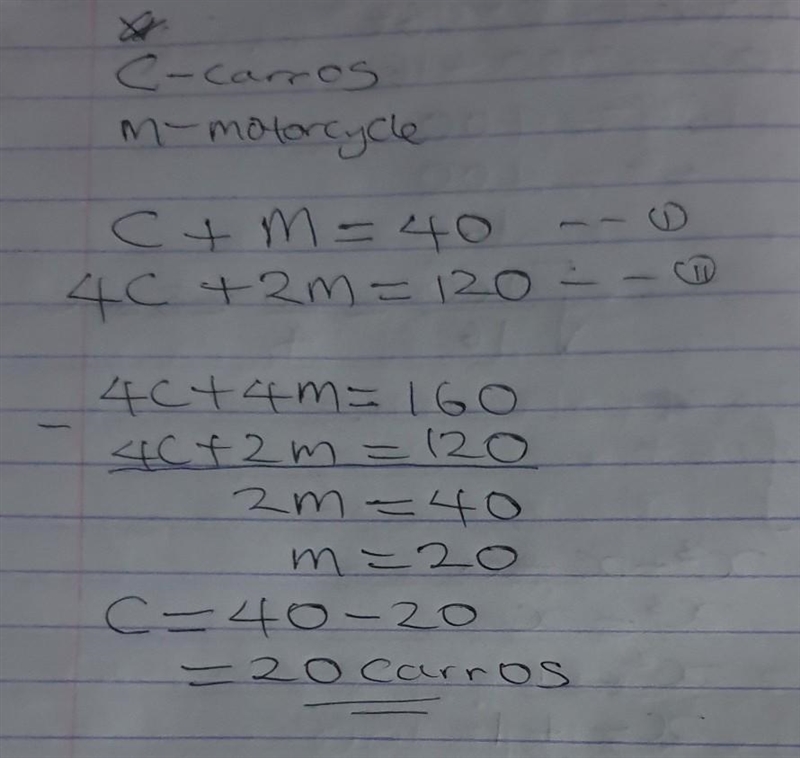 C-carros
m-motorcycle
C + m = 40 -- (I)
4C + 2m = 120 -- (II)
4C + 4m = 160
- 4C + 2m = 120
2m = 40
m = 20
C = 40 - 20
= 20 carros